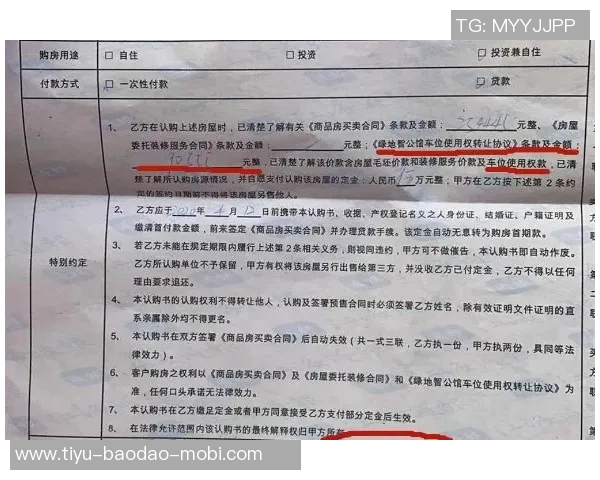 TG: MYYJJPP
购房用途 □ 自住 □ 投资 □ 投资兼自住
付款方式 □ 一次性付款 □ 贷款
特别约定
1、乙方在认购上述房屋时,已清楚了解有关《商品房买卖合同》条款及金额: 元整、《房屋
委托装修服务合同》条款及金额: 元整、《绿地智公馆车位使用权转让协议》条款及金额:
元整,已清楚了解该价款含房屋毛坯价款和装修服务价款及车位使用权款,已清
楚了解所认购房源情况,并自愿支付认购该房屋的定金:人民币 万元整;甲方在乙方按下述第 2 条约
定的签约日期前不得将该房屋另售他人。
2、乙方应于 年 月 日前携带本认购书、收据、产权登记名义之人身份证、结婚证、户籍证明及
缴清首付款金额,前来签定《商品房买卖合同》并办理贷款手续。该定金自动无息转为购房首期款。
3、若乙方未能在规定期限内履行上述第 2 条相关义务,则视同违约,甲方可不做催告,本认购书即自动作废。
乙方所认购单位不予保留,甲方有权将该房屋另行出售给第三方,并没收乙方已付定金,乙方不得以任何
理由要求退还。
4、本认购书的认购权利不得转让他人,认购及签署预售合同时必须签署乙方姓名,除有效证明文件证明的直
系亲属除外均不得更名。
5、本认购书在双方签署《商品房买卖合同》后自动失效(共一式三联,乙方执一份,甲方执两份,具同等法
律效力)。
6、客户购房之权利以《商品房买卖合同》及《房屋委托装修合同》和《绿地智公馆车位使用权转让协议》为
准,任何口头承诺无法律效力。
7、本认购书在乙方缴足定金或者甲方同意接受乙方支付部分定金后生效。
8、在法律允许范围内该认购书的最终解释权归甲方所有
www.tiyu-baodao-mobi.com